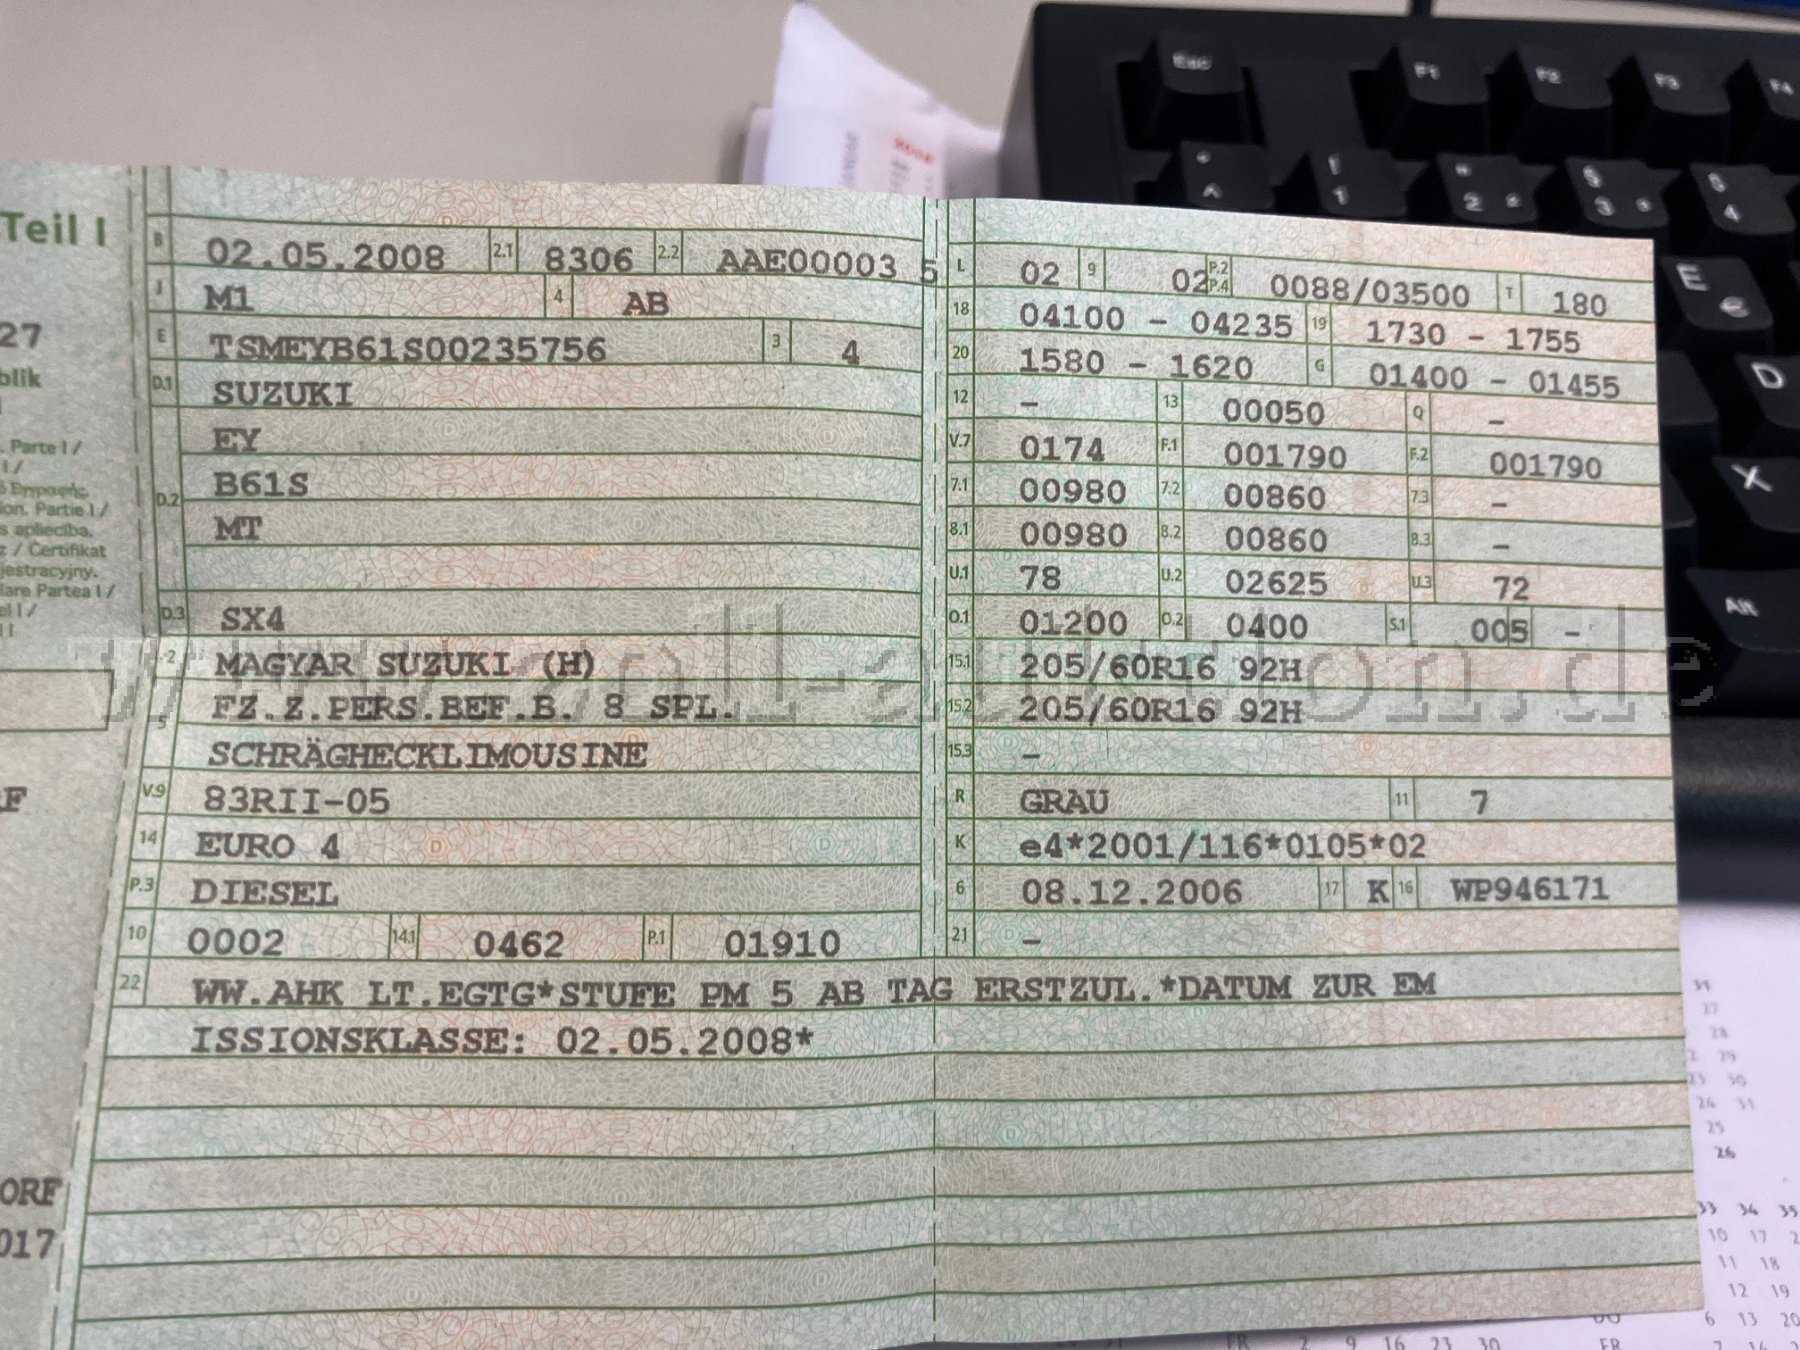 Teil I
B 02.05.2008 2.1 8306 2.2 AAE00003 5
J M1 4 AB
E TSMEYB61S00235756 3 4
D.1 SUZUKI
EY
D.2 B61S
MT
D.3 SX4
MAGYAR SUZUKI (H)
FZ.Z.PERS.BEF.B. 8 SPL.
5 SCHRÄGHECKLIMOUSINE
V.9 83RII-05
14 EURO 4
P.3 DIESEL
10 0002 14.1 0462 P.1 01910
L 02 9 02 P.2 P.4 0088/03500 T 180
18 04100 - 04235 19 1730 - 1755
20 1580 - 1620 G 01400 - 01455
12 - 13 00050 Q -
V.7 0174 F.1 001790 F.2 001790
7.1 00980 7.2 00860 7.3 -
8.1 00980 8.2 00860 8.3 -
U.1 78 U.2 02625 U.3 72
O.1 01200 O.2 0400 S.1 005 -
15.1 205/60R16 92H
15.2 205/60R16 92H
15.3 -
R GRAU 11 7
K e4*2001/116*0105*02
6 08.12.2006 17 K 16 WP946171
21 -
22 WW.AHK LT.EGTG*STUFE PM 5 AB TAG ERSTZUL.*DATUM ZUR EM
ISSIONSKLASSE: 02.05.2008*
27
blik
. Parte I /
I /
ion. Partie I /
s apliecība.
z / Certifikat
jestracyjny.
lare Partea I /
el I /
ORF
017
Esc F1 F2 F3 F4
1 2 3 4
E €
D
X
Alt